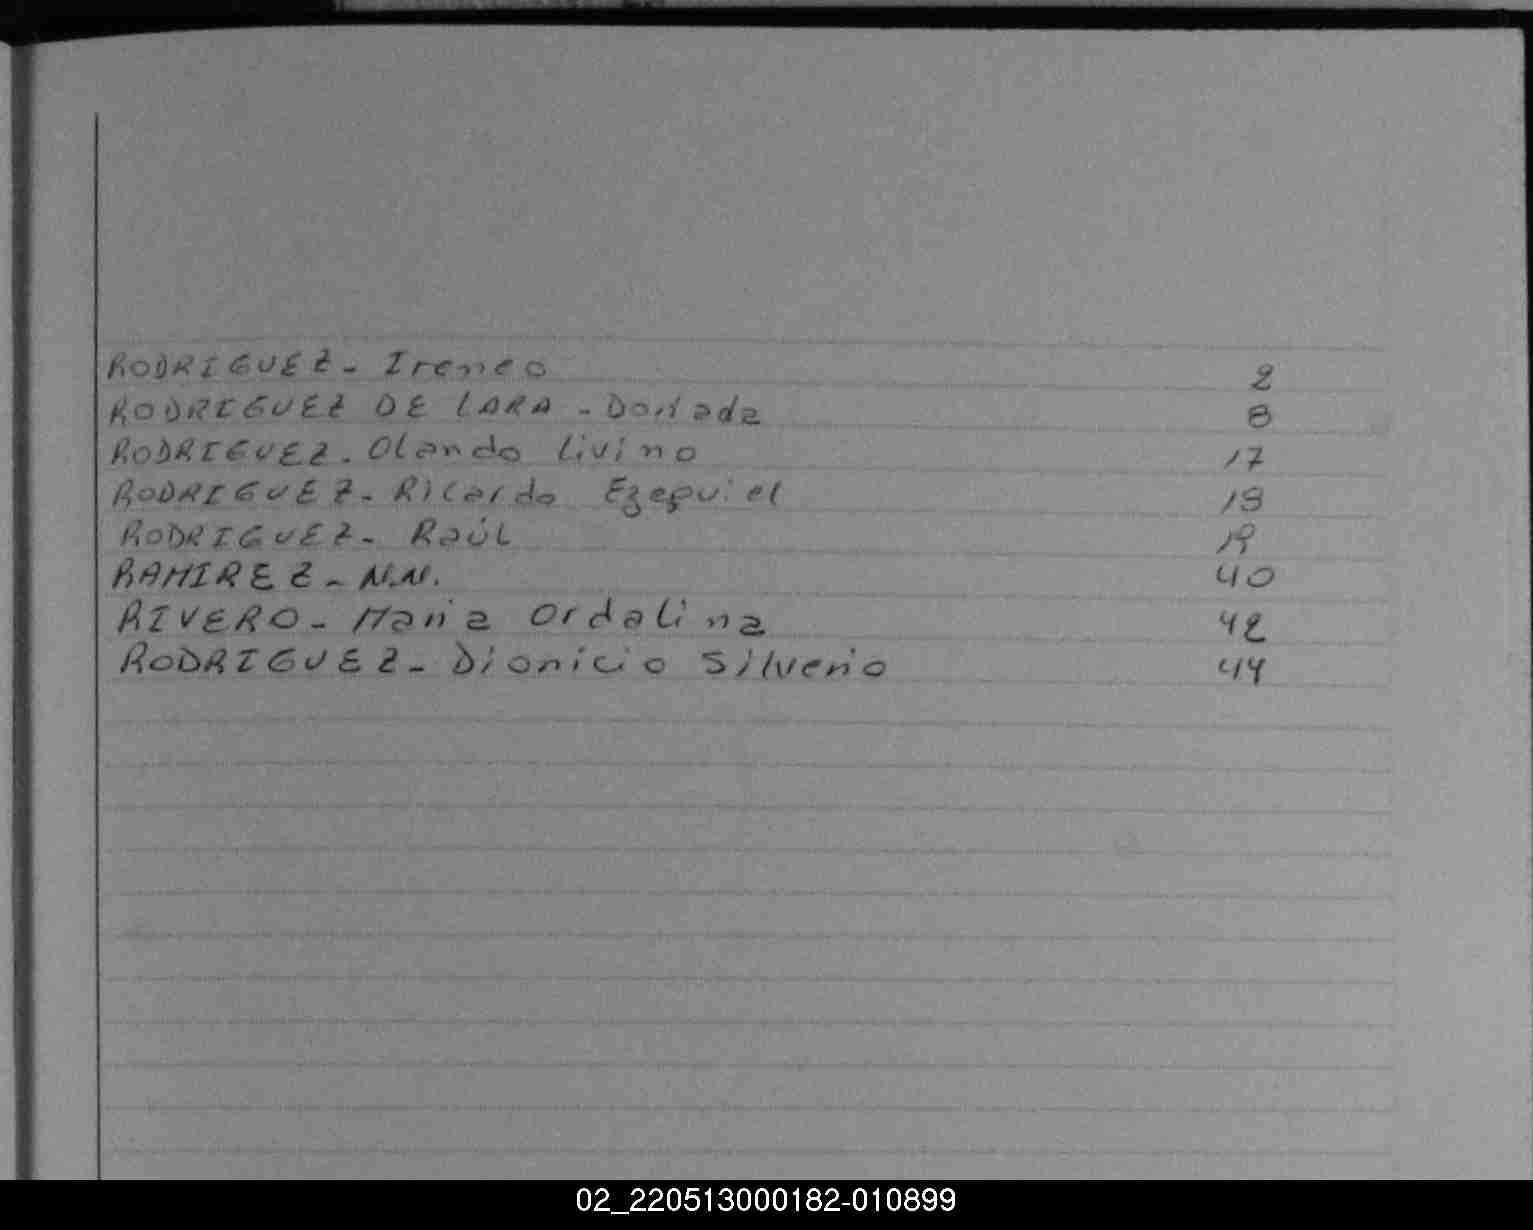 RODRIGUEZ - Ireneo 2
RODRIGUEZ DE LARA - Doriada 8
RODRIGUEZ. Olando Livino 17
RODRIGUEZ - Ricardo Ezequiel 18
RODRIGUEZ - Raúl 19
RAMIREZ - N.N. 40
RIVERO - Maria Ordalina 42
RODRIGUEZ - Dionicio Silverio 44
02_220513000182-010899